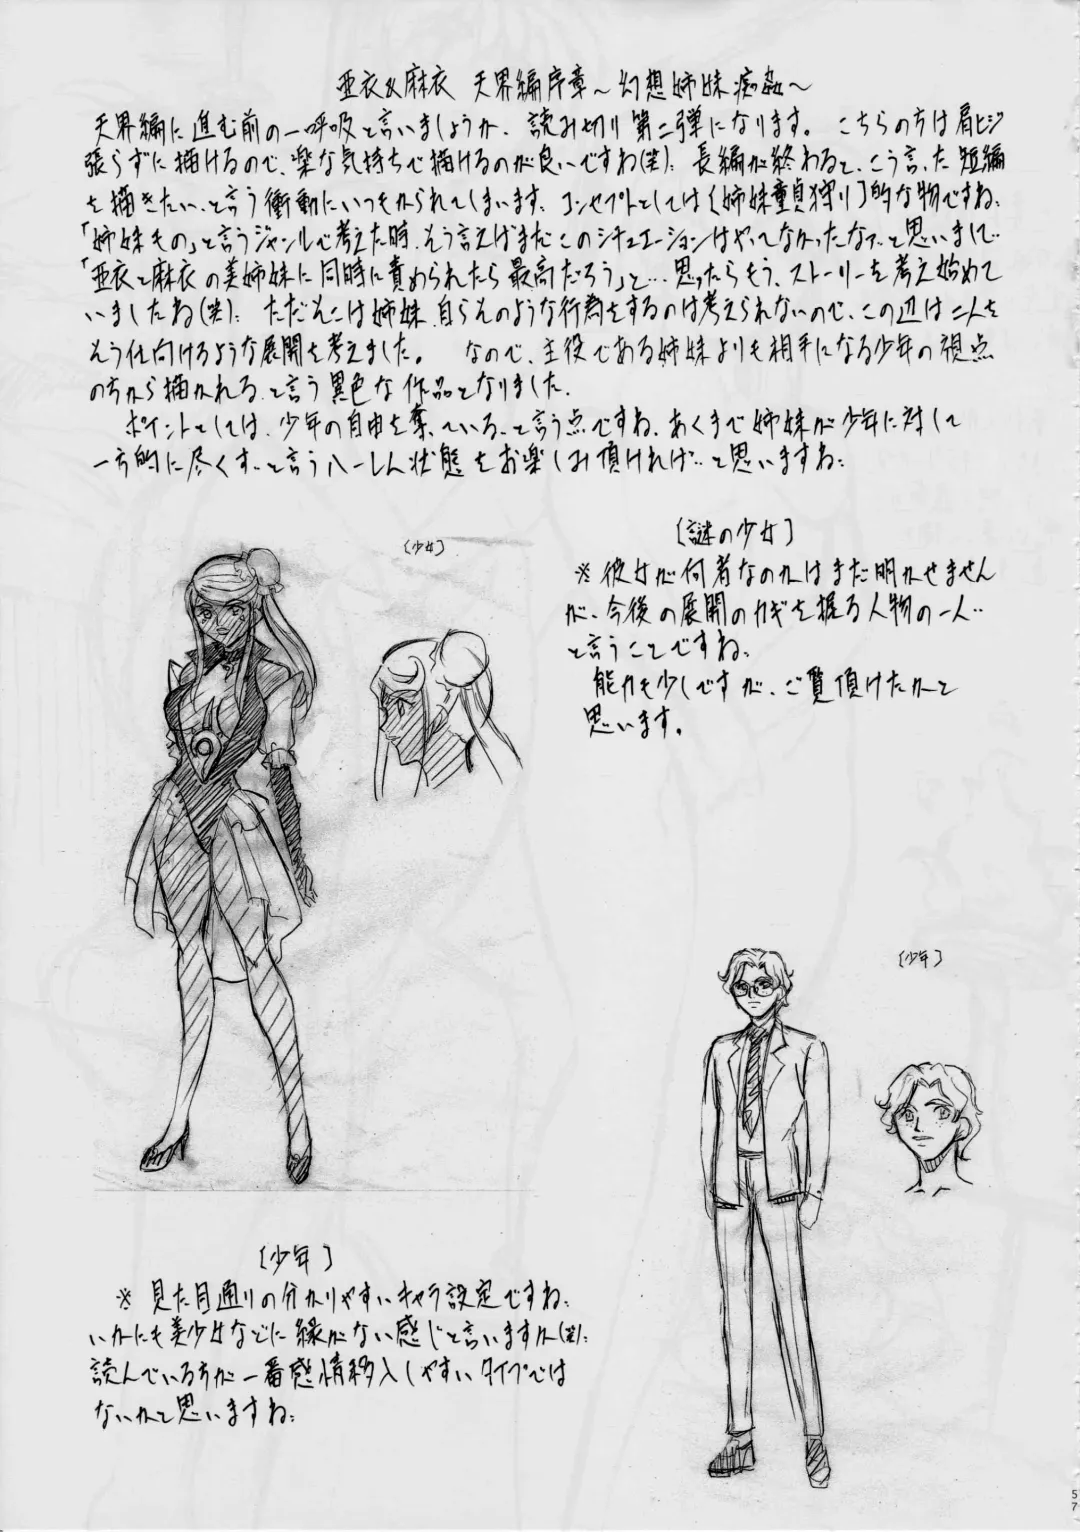 亜衣&麻衣 天界編序章～幻想姉妹痴姦～
天界編に進む前の一呼吸と言いましょうか、読み切り第二弾になります。こちらの方は肩ヒジ
張らずに描けるので、楽な気持ちで描けるのが良いですね(笑)。長編が終わると、こう言った短編
を描きたい、と言う衝動にいつもかられてしまいます。コンセプトとしては〔姉妹童貞狩り〕的な物ですね。
「姉妹もの」と言うジャンルで考えた時、そう言えばまだこのシチュエーションはやってなかったなァ…と思いまして…
「亜衣と麻衣の美姉妹に同時に責められたら最高だろう」と…思ったらもう、ストーリーを考え始めて
いましたね(笑)。ただそこは姉妹、自らそのような行為をするのは考えられないので、この辺は二人を
そう仕向けるような展開を考えました。なので、主役である姉妹よりも相手になる少年の視点
の方から描かれる、と言う異色な作品となりました。
ポイントとしては、少年の自由を奪っている、と言う点ですね。あくまで姉妹が少年に対して
一方的に尽くす…と言うハーレム状態をお楽しみ頂ければ…と思いますね。
〔謎の少女〕
〔少女〕
※彼女が何者なのかはまだ明かせません
が、今後の展開のカギを握る人物の一人…
と言うことですね。
能力も少しですが、ご覧頂けたかと
思います。
〔少年〕
〔少年〕
※見た目通りの分かりやすいキャラ設定ですね。
いかにも美少女などに縁がない感じと言いますか(笑)。
読んでいる方が一番感情移入しやすいタイプでは
ないかと思いますね。
57